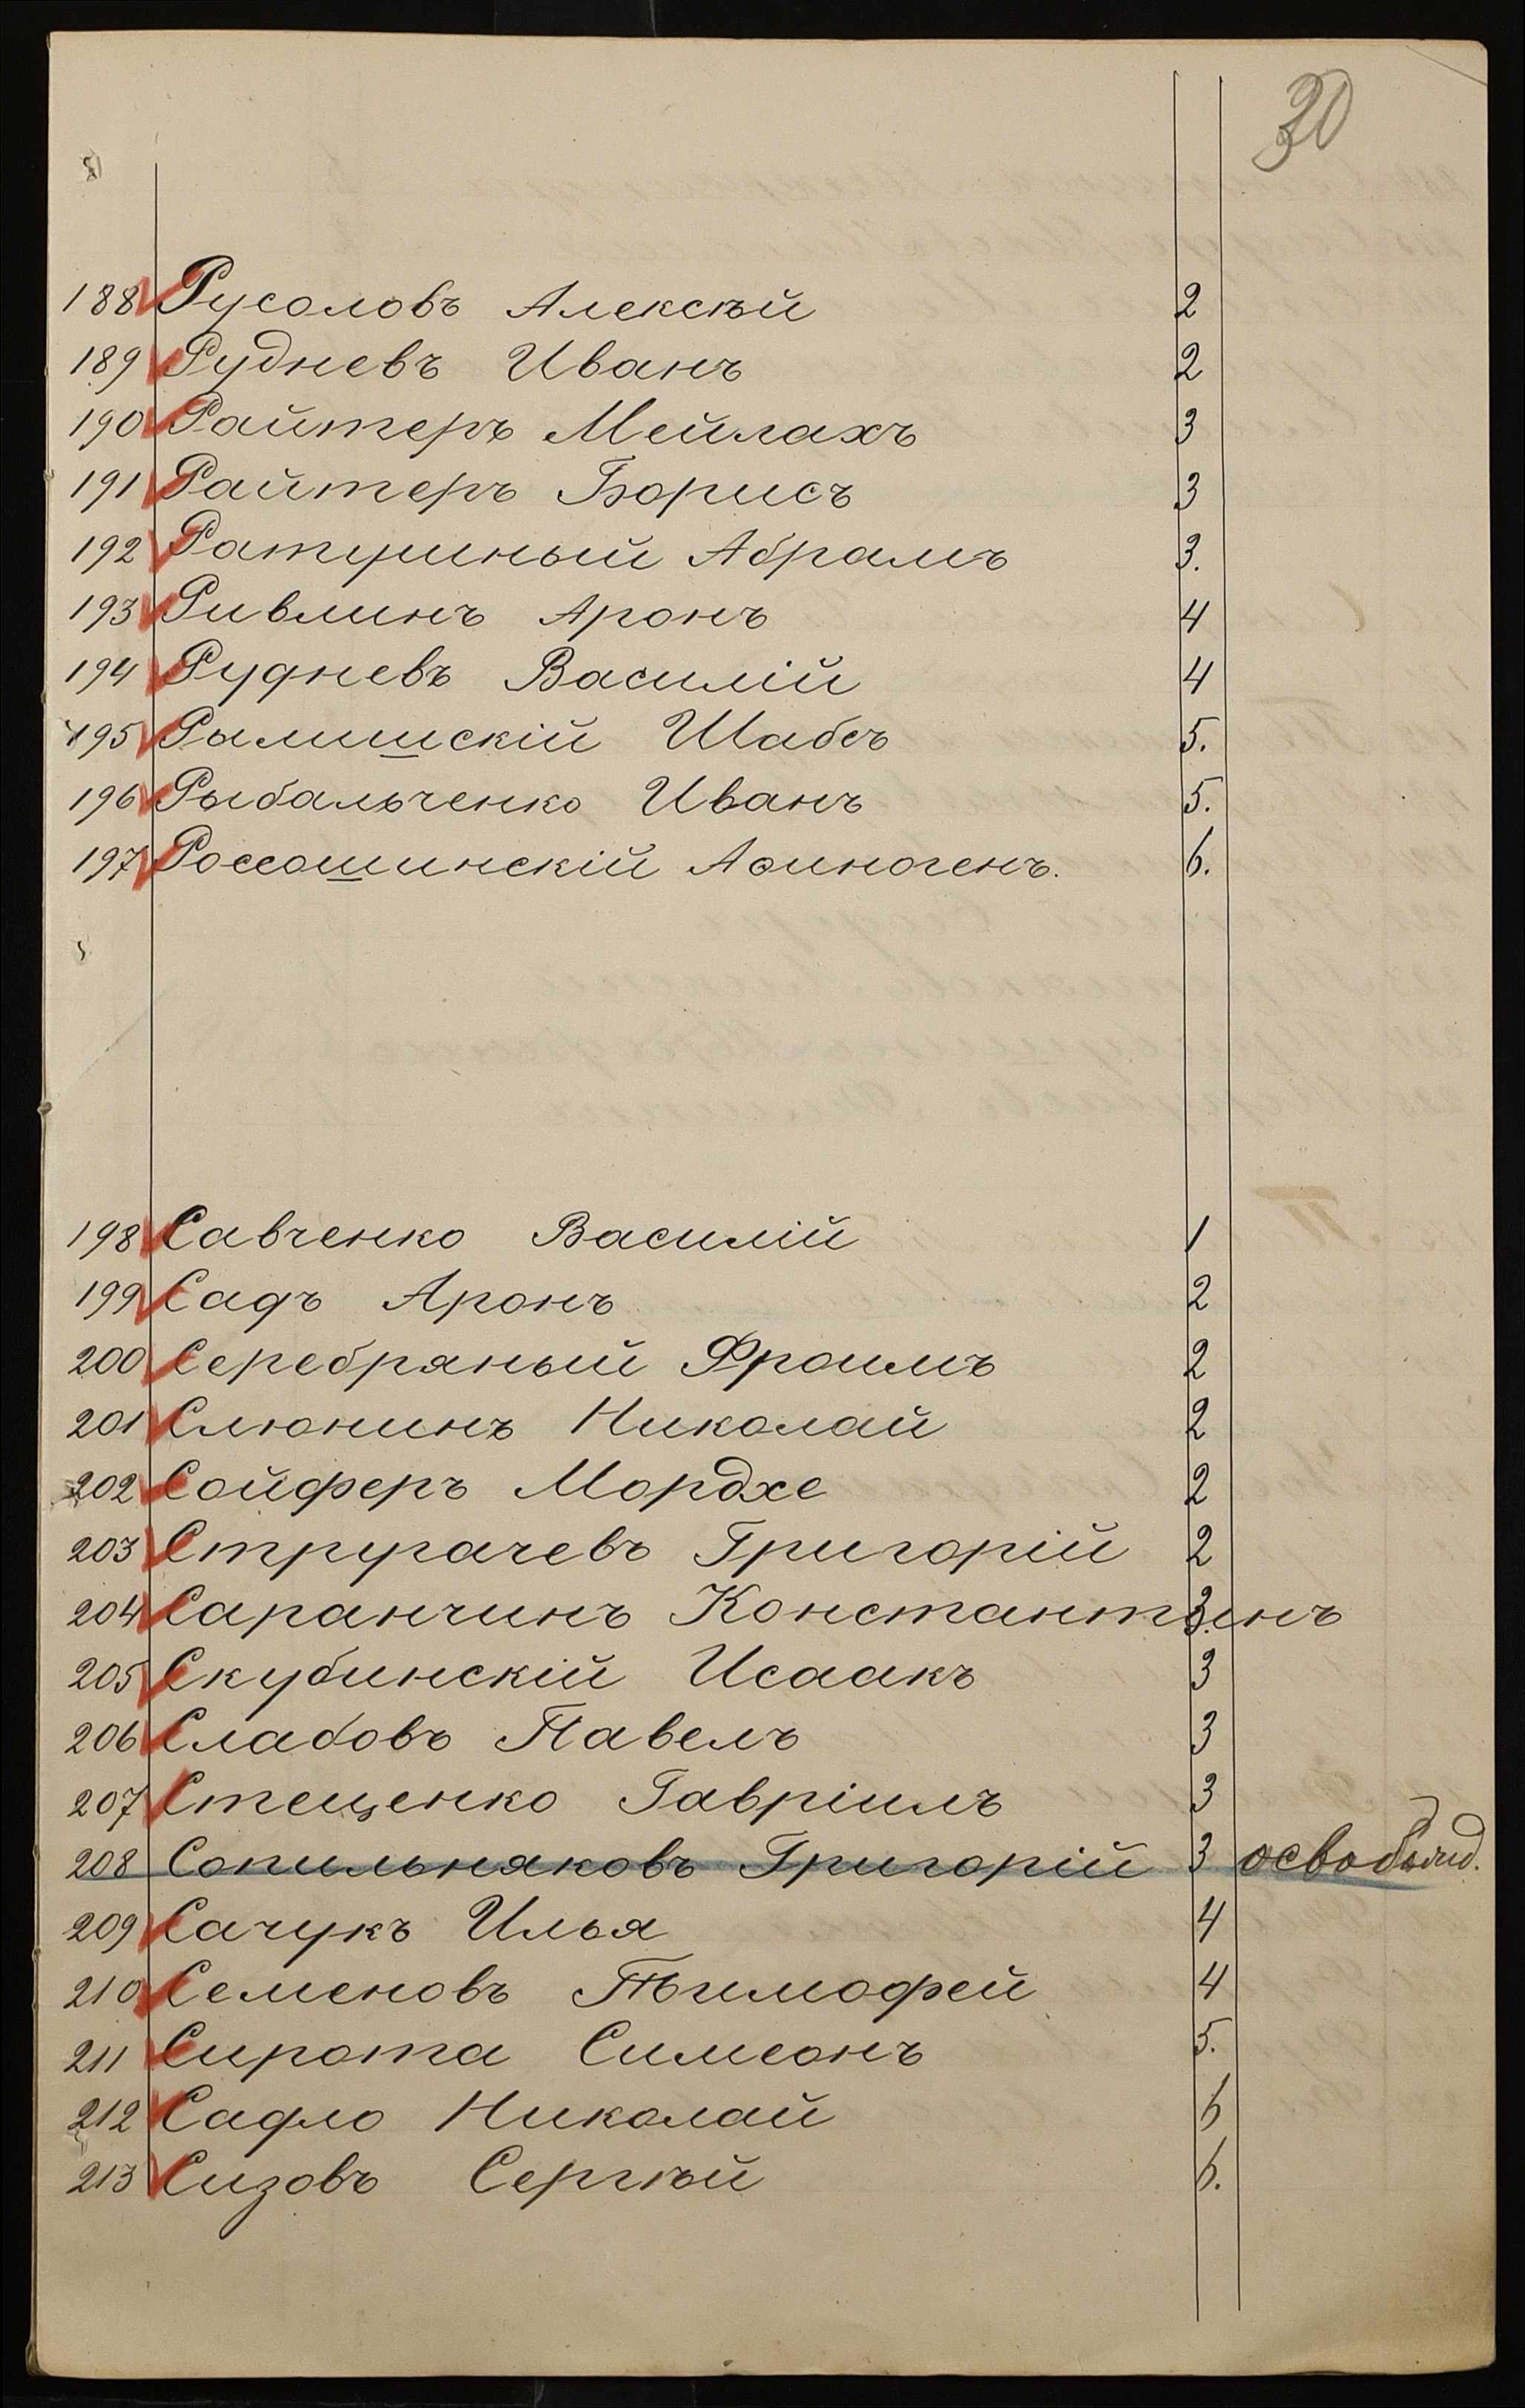 30
188 Русаловъ Алексѣй 2
189 Рудневъ Иванъ 2
190 Райтеръ Мейлахъ 3
191 Райтеръ Борисъ 3
192 Ратушный Абрамъ 3.
193 Ривлинъ Аронъ 4
194 Рудневъ Василій 4
195 Рымшискій Шабсъ 5.
196 Рыбальченко Иванъ 5.
197 Россошинскій Аѳиногенъ. 6.
198 Савченко Василій 1
199 Садъ Аронъ 2
200 Серебряный Фроимъ 2
201 Слюнинъ Николай 2
202 Сойферъ Мордхе 2
203 Стругачевъ Григорій 2
204 Саранчинъ Константинъ 3.
205 Скубинскій Исаакъ 3
206 Слабовъ Павелъ 3
207 Стеценко Гавріилъ 3
208 Сопильняковъ Григорій 3
209 Сачукъ Илья 4
210 Семеновъ Тимофей 4
211 Сирота Симеонъ 5.
212 Садло Николай 6
213 Сизовъ Сергѣй 6.